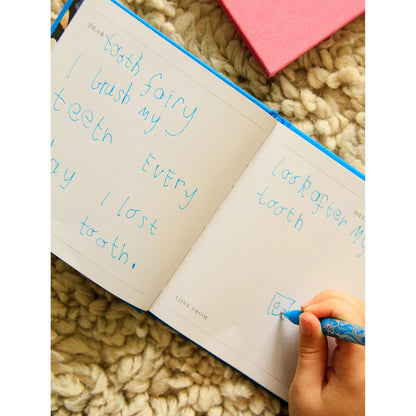 DEAR tooth fairy
I brush my
teeth Every
day I lost
tooth.
LOVE FROM
DAT
Look after my
tooth